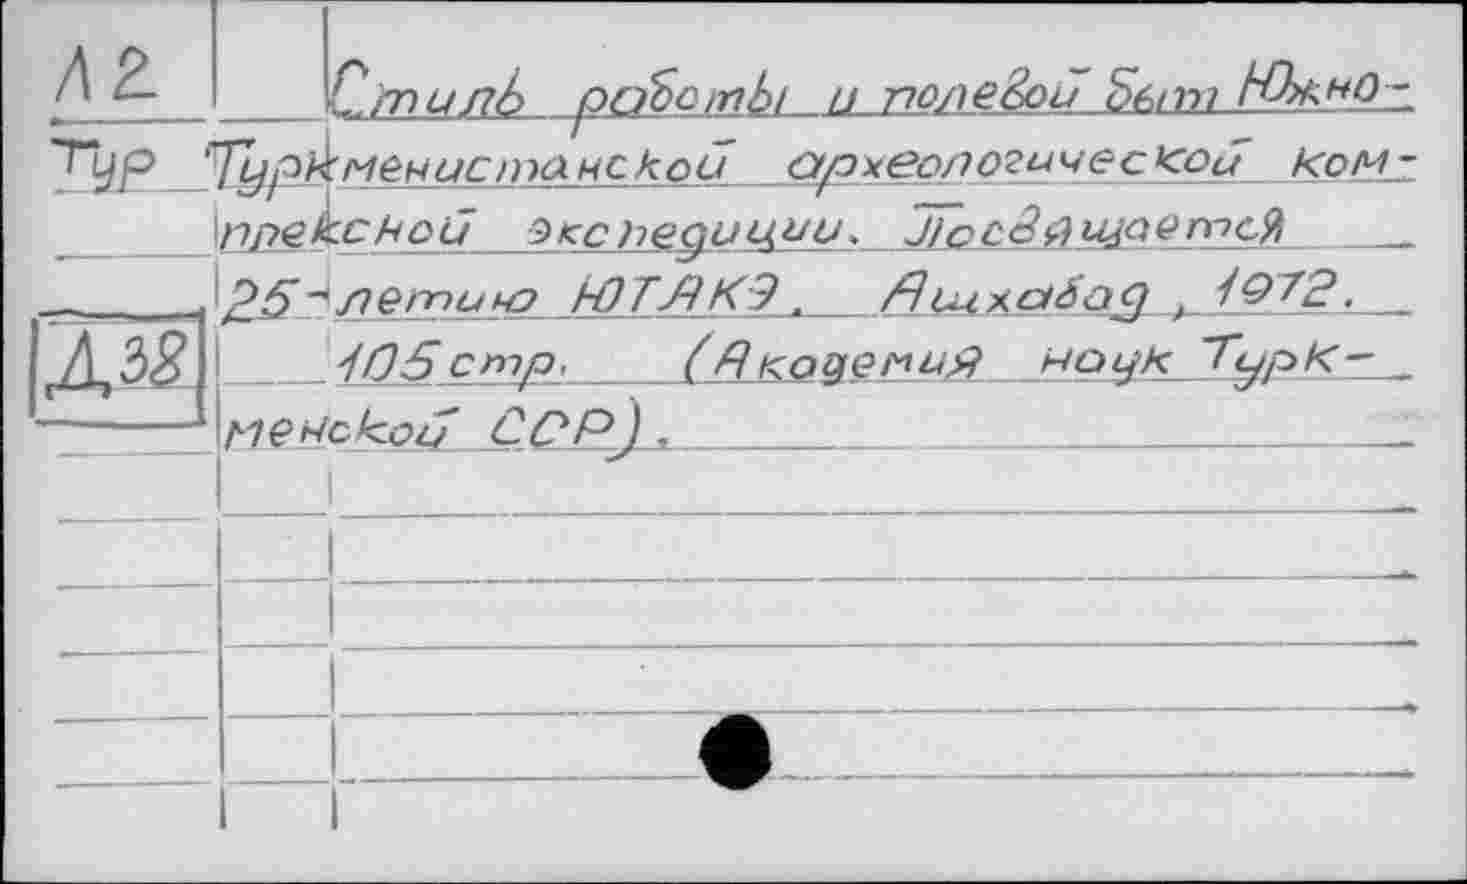 Л2 Стиль работы и полевой быт Южно-
Тур Туркменистанской археологической ком-
плексной экспедиции. Посвящается
25-летию ЮТАКЭ. Ашхабад, 1972.
Д38 105 стр. (Академия наук Турк-
менской ССР).